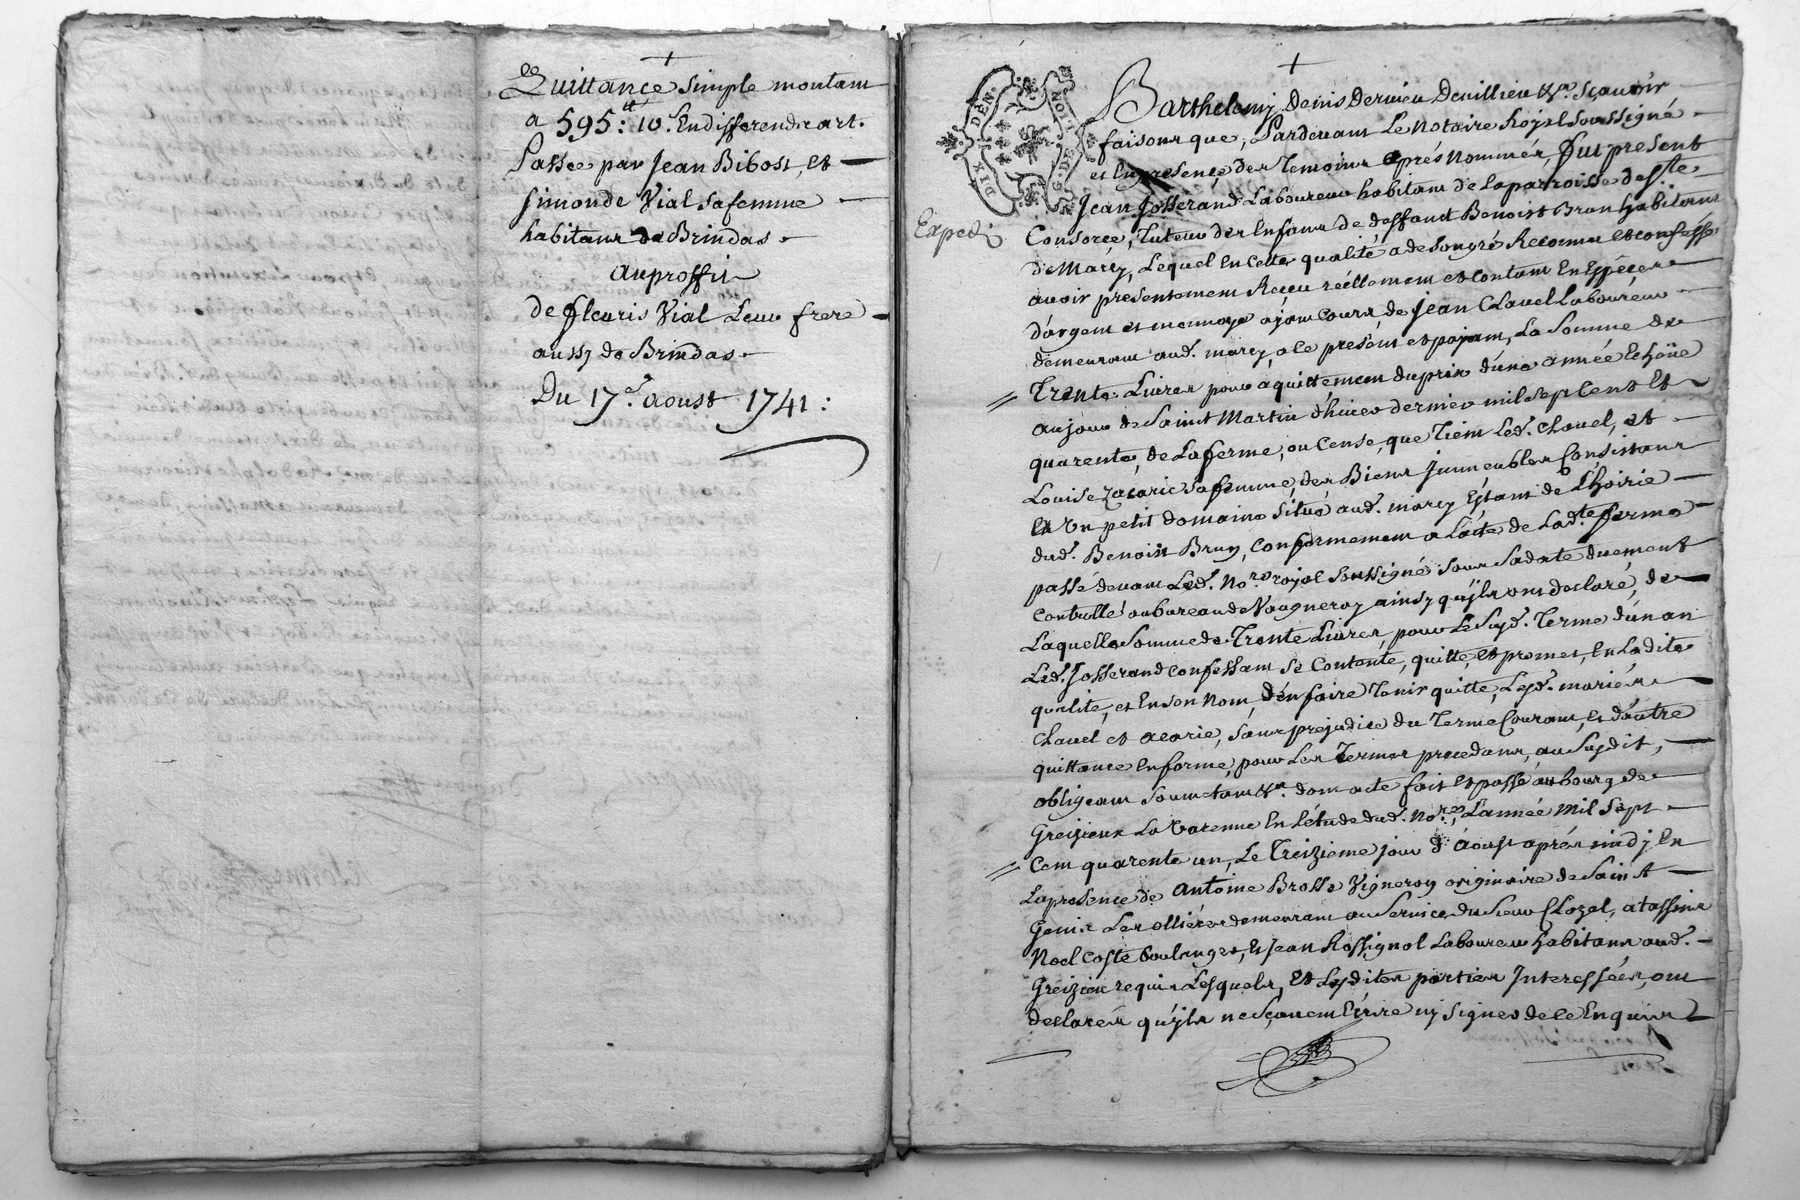 +
Quittance simple montam
a 595:tt 10s En differendz art.
Passée par Jean Bibost, et
simonde Vial sa femme
habitans de Brindas.
auproffit
de fleuris Vial Leur frere
aussy de Brindas.
Du 17e. aoust 1741:
+
DIX DEN. G. DE LION
Barthelemy Denis Dervieu Devillieu &a. Sçavoir
faisons que, Pardevant Le Notaire Royal Soussigné
et En presence des Temoins après Nommés, fut present
Jean Josserand Laboureur habitant de la parroisse de Ste
Expedié
Consorce, Tuteur des Enfans de deffunt Benoist Brun habitans
de Marcy, Lequel en cette qualité a de son gré Reconnu et confessé
avoir presentement Reçeu réellement et contant En Espèces
d'argent et monnoye ajant cours de Jean Clavel Laboureur
demeurant aud. marcy, a le present et pajant, La Somme de
Trente Livres pour aquittement du prix d'une année Echüe
au jour de Saint Martin d'hiver dernier mil sept Cent Et
quarente, de La ferme, ou Cense, que Tient Led. Clavel, et
Louise Zacarie sa femme, des Biens Immeubles Consistans
En Un petit domaine situé aud. marcy Estant de L'hoirie
dud. Benoist Brun, Conformement a L'acte de Lad.te ferme
passé devant Led. No.re royal soussigné sous sa date duement
Controllé au bureau de Vaugneray ainsy qu'jls ont declaré, de
Laquelle Somme de Trente Livres, pour Le Sujd. Terme d'un an
Led. Josserand Confessant se Contente, quitte, et promet, En Ladite
qualité, et En son Nom, d'En faire Tenir quitte, Lesd. mariés
Clavel et acarie, Sans prejudice du Terme Courant, et d'autre
quittance En forme, pour Les Termes precedans, au Sujdit,
obligeant Soumettant &a. dont acte fait Et passé au bourg de
Greizieux La Varenne En L'étude dud. No.re, L'année Mil Sept
Cent quarente un, Le Treizieme jour d'aoust après midj En
La presence de Antoine Brosse Vigneron originaire de Saint
Genis Les ollières demeurant au Service du Sieur Clozel, a tassins
Noel Coste boulanger, Et Jean Rossignol Laboureur habitans aud.
Greizieu requis Lesquels, Et Lesdites parties Interessées, ont
declarés qu'jls ne Sçavent Ecrire nj signer de ce Enquis